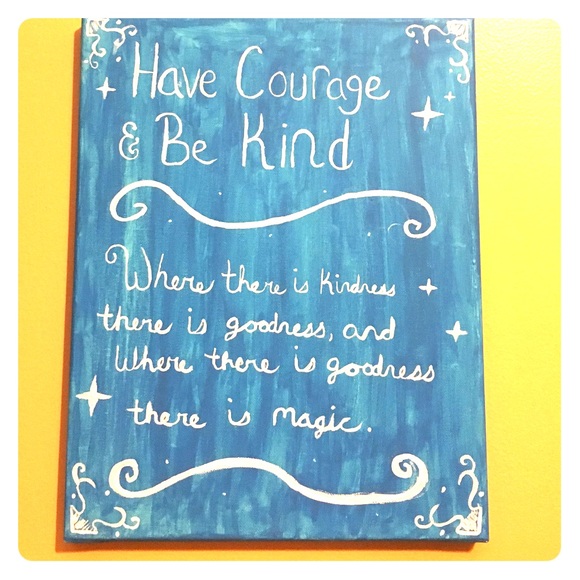 Have Courage
& Be Kind
Where there is Kindness
there is goodness, and
Where there is goodness
there is magic.